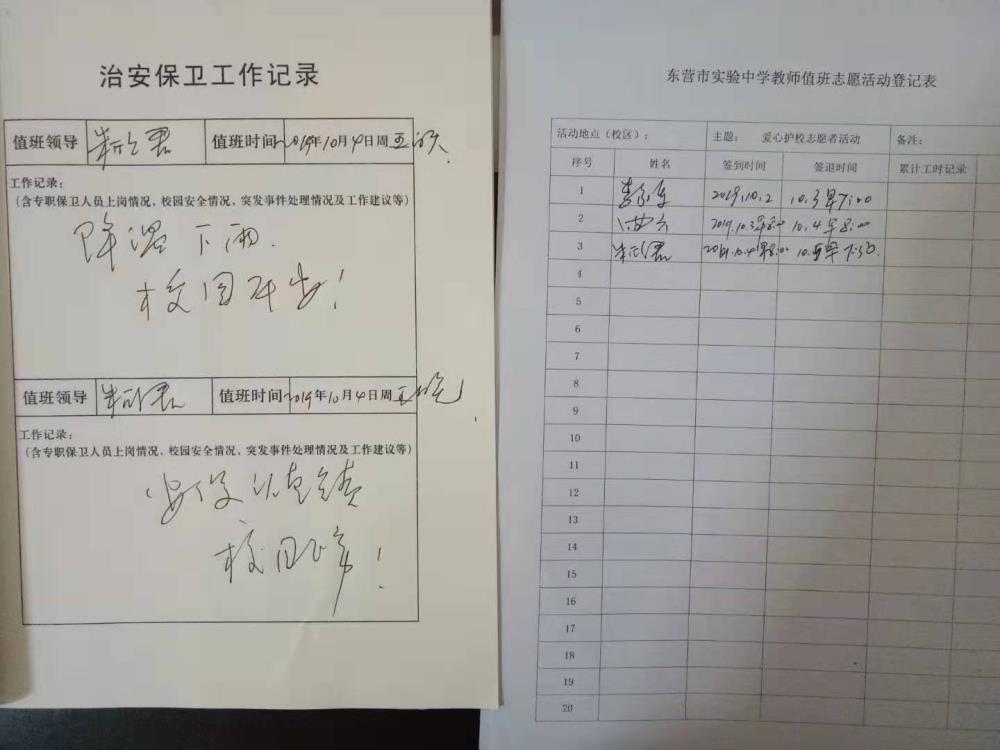 治安保卫工作记录
值班领导 值班时间 2019年10月4日周五
工作记录：
（含专职保卫人员上岗情况，校园安全情况，突发事件处理情况及工作建议等）
降温下雨.
校园平安！
值班领导 值班时间 2019年10月4日周五晚
工作记录：
（含专职保卫人员上岗情况，校园安全情况，突发事件处理情况及工作建议等）
安保认真负责
校园
东营市实验中学教师值班志愿活动登记表
活动地点（校区）： 主题： 爱心护校志愿者活动 备注：
序号 姓名 签到时间 签退时间 累计工时记录
1 2019.10.2 10.3早7:00
2 2019.10.3早8:00 10.4早8:00
3 2019.10.4早8:00
4
5
6
7
8
9
10
11
12
13
14
15
16
17
18
19
20